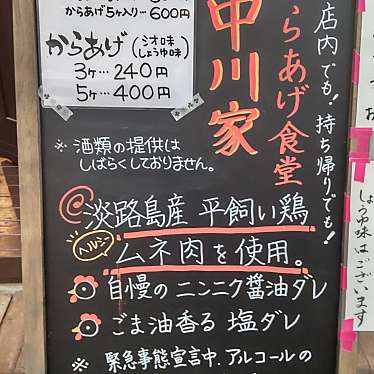 からあげ5ヶ入り‐600円
からあげ(シオ味 しょうゆ味)
3ヶ…240円
5ヶ…400円
店内でも!持ち帰りでも!
らあげ食堂
中川家
※酒類の提供は
しばらくしておりません。
@淡路島産 平飼い鶏
ヘルシー ムネ肉を使用。
自慢のニンニク醤油ダレ
ごま油香る塩ダレ
※緊急事態宣言中、アルコールの
しょうゆ味はございます